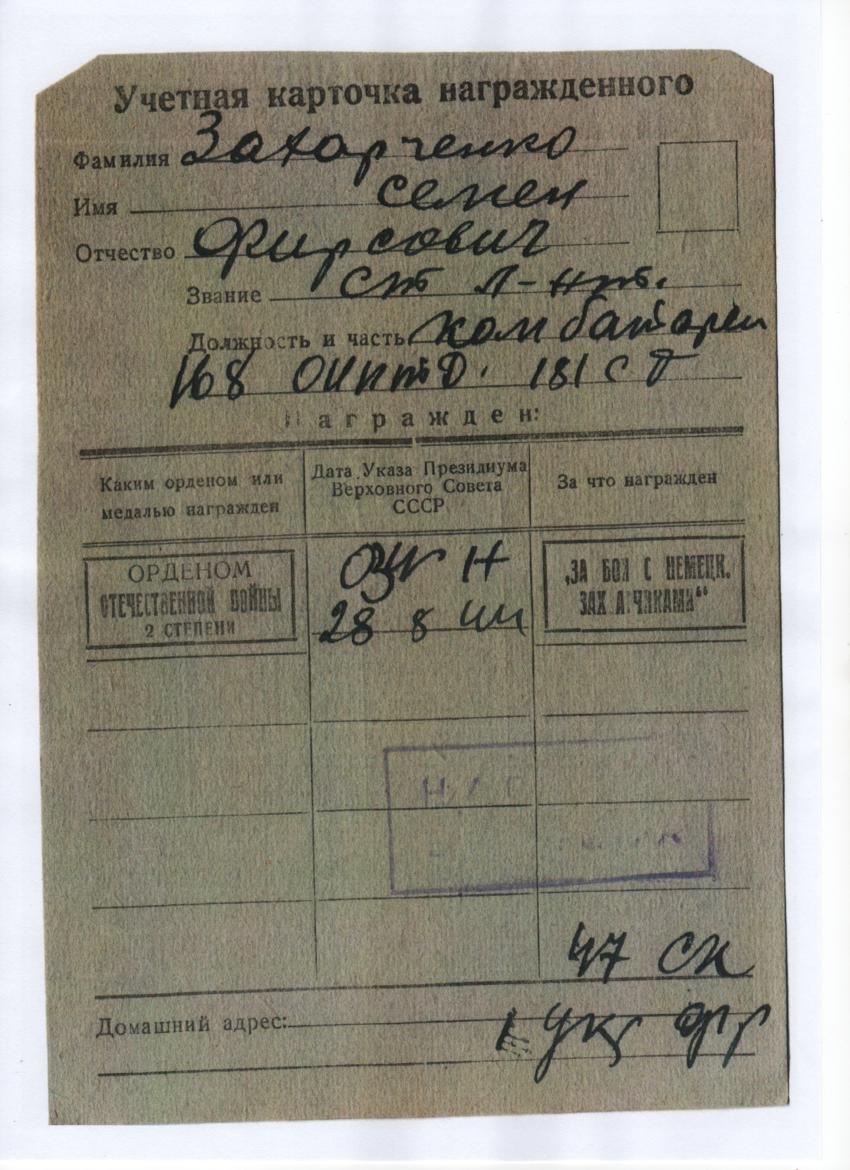 Учетная карточка награжденного
Фамилия Захарченко
Имя Семен
Отчество Фирсович
Звание ст л-нт.
Должность и часть ком батареи
168 ОИПТД. 181 СД
Награжден:
Каким орденом или
медалью награжден
Дата Указа Президиума
Верховного Совета
СССР
За что награжден
ОРДЕНОМ
ОТЕЧЕСТВЕННОЙ ВОЙНЫ
2 СТЕПЕНИ
28 8 44
„ЗА БОИ С НЕМЕЦК.
ЗАХВАТЧИКАМИ“
47 СК
Домашний адрес:
1 Укр фр